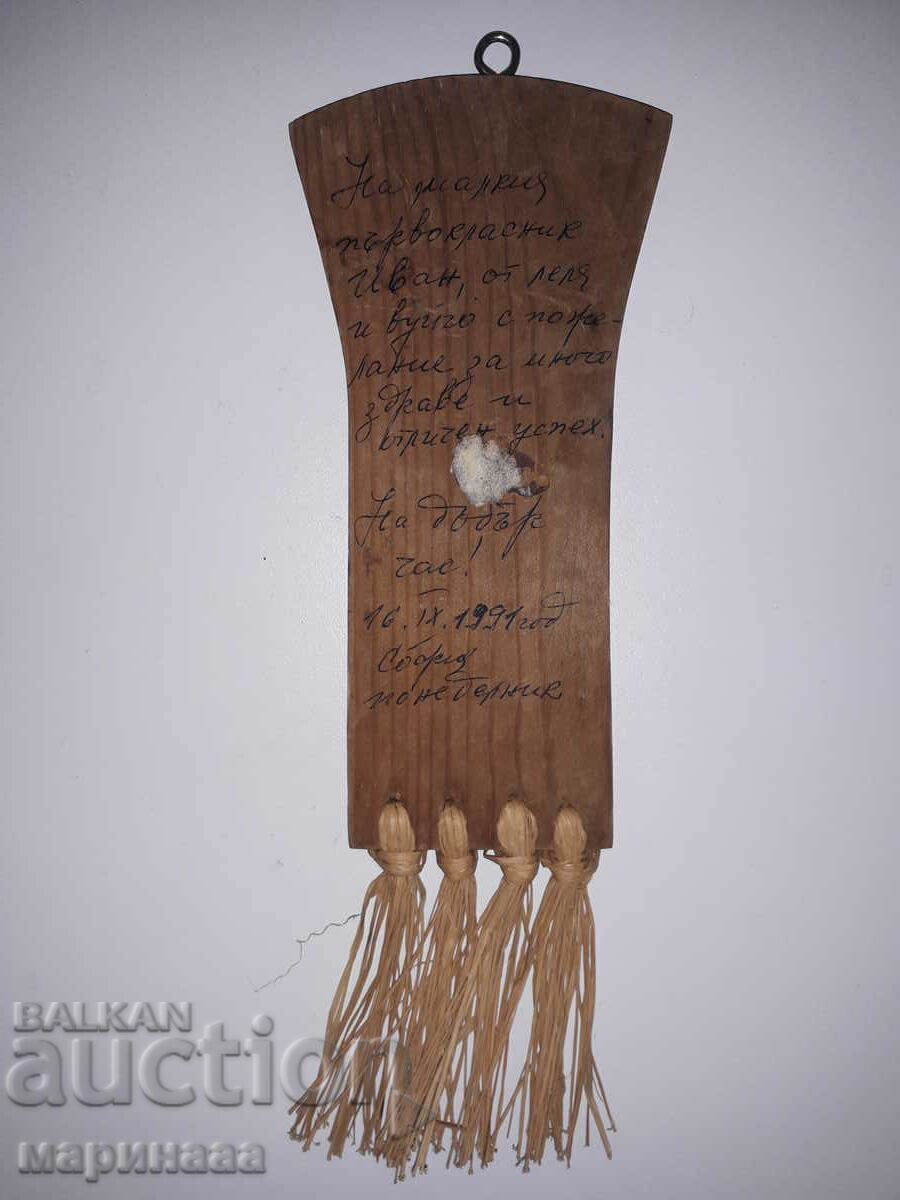 На малкия
първокласник
Иван, от леля
и вуйчо с поже-
лание за много
здраве и
отличен успех!
На добър
час!
16. IX. 1991 год
София
понеделник
BALKAN
auction
маринааа